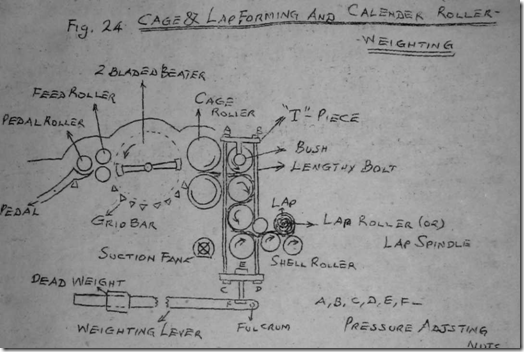 Fig. 24. CAGE & LAP FORMING AND CALENDER ROLLER-
WEIGHTING
2 BLADED BEATER
FEED ROLLER
PEDAL ROLLER
CAGE
ROLLER
A B
"I"-PIECE
BUSH
LENGTHY BOLT
PEDAL
GRID BAR
LAP
LAP ROLLER (OR)
LAP SPINDLE
SUCTION FANK
SHELL ROLLER
E
C D
DEAD WEIGHT
F
A, B, C, D, E, F-
PRESSURE ADJSTING
NUTS
WEIGHTING LEVER
FULCRUM